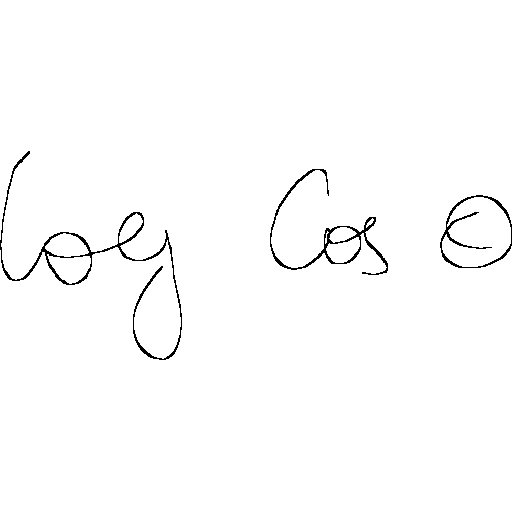 log cos θ